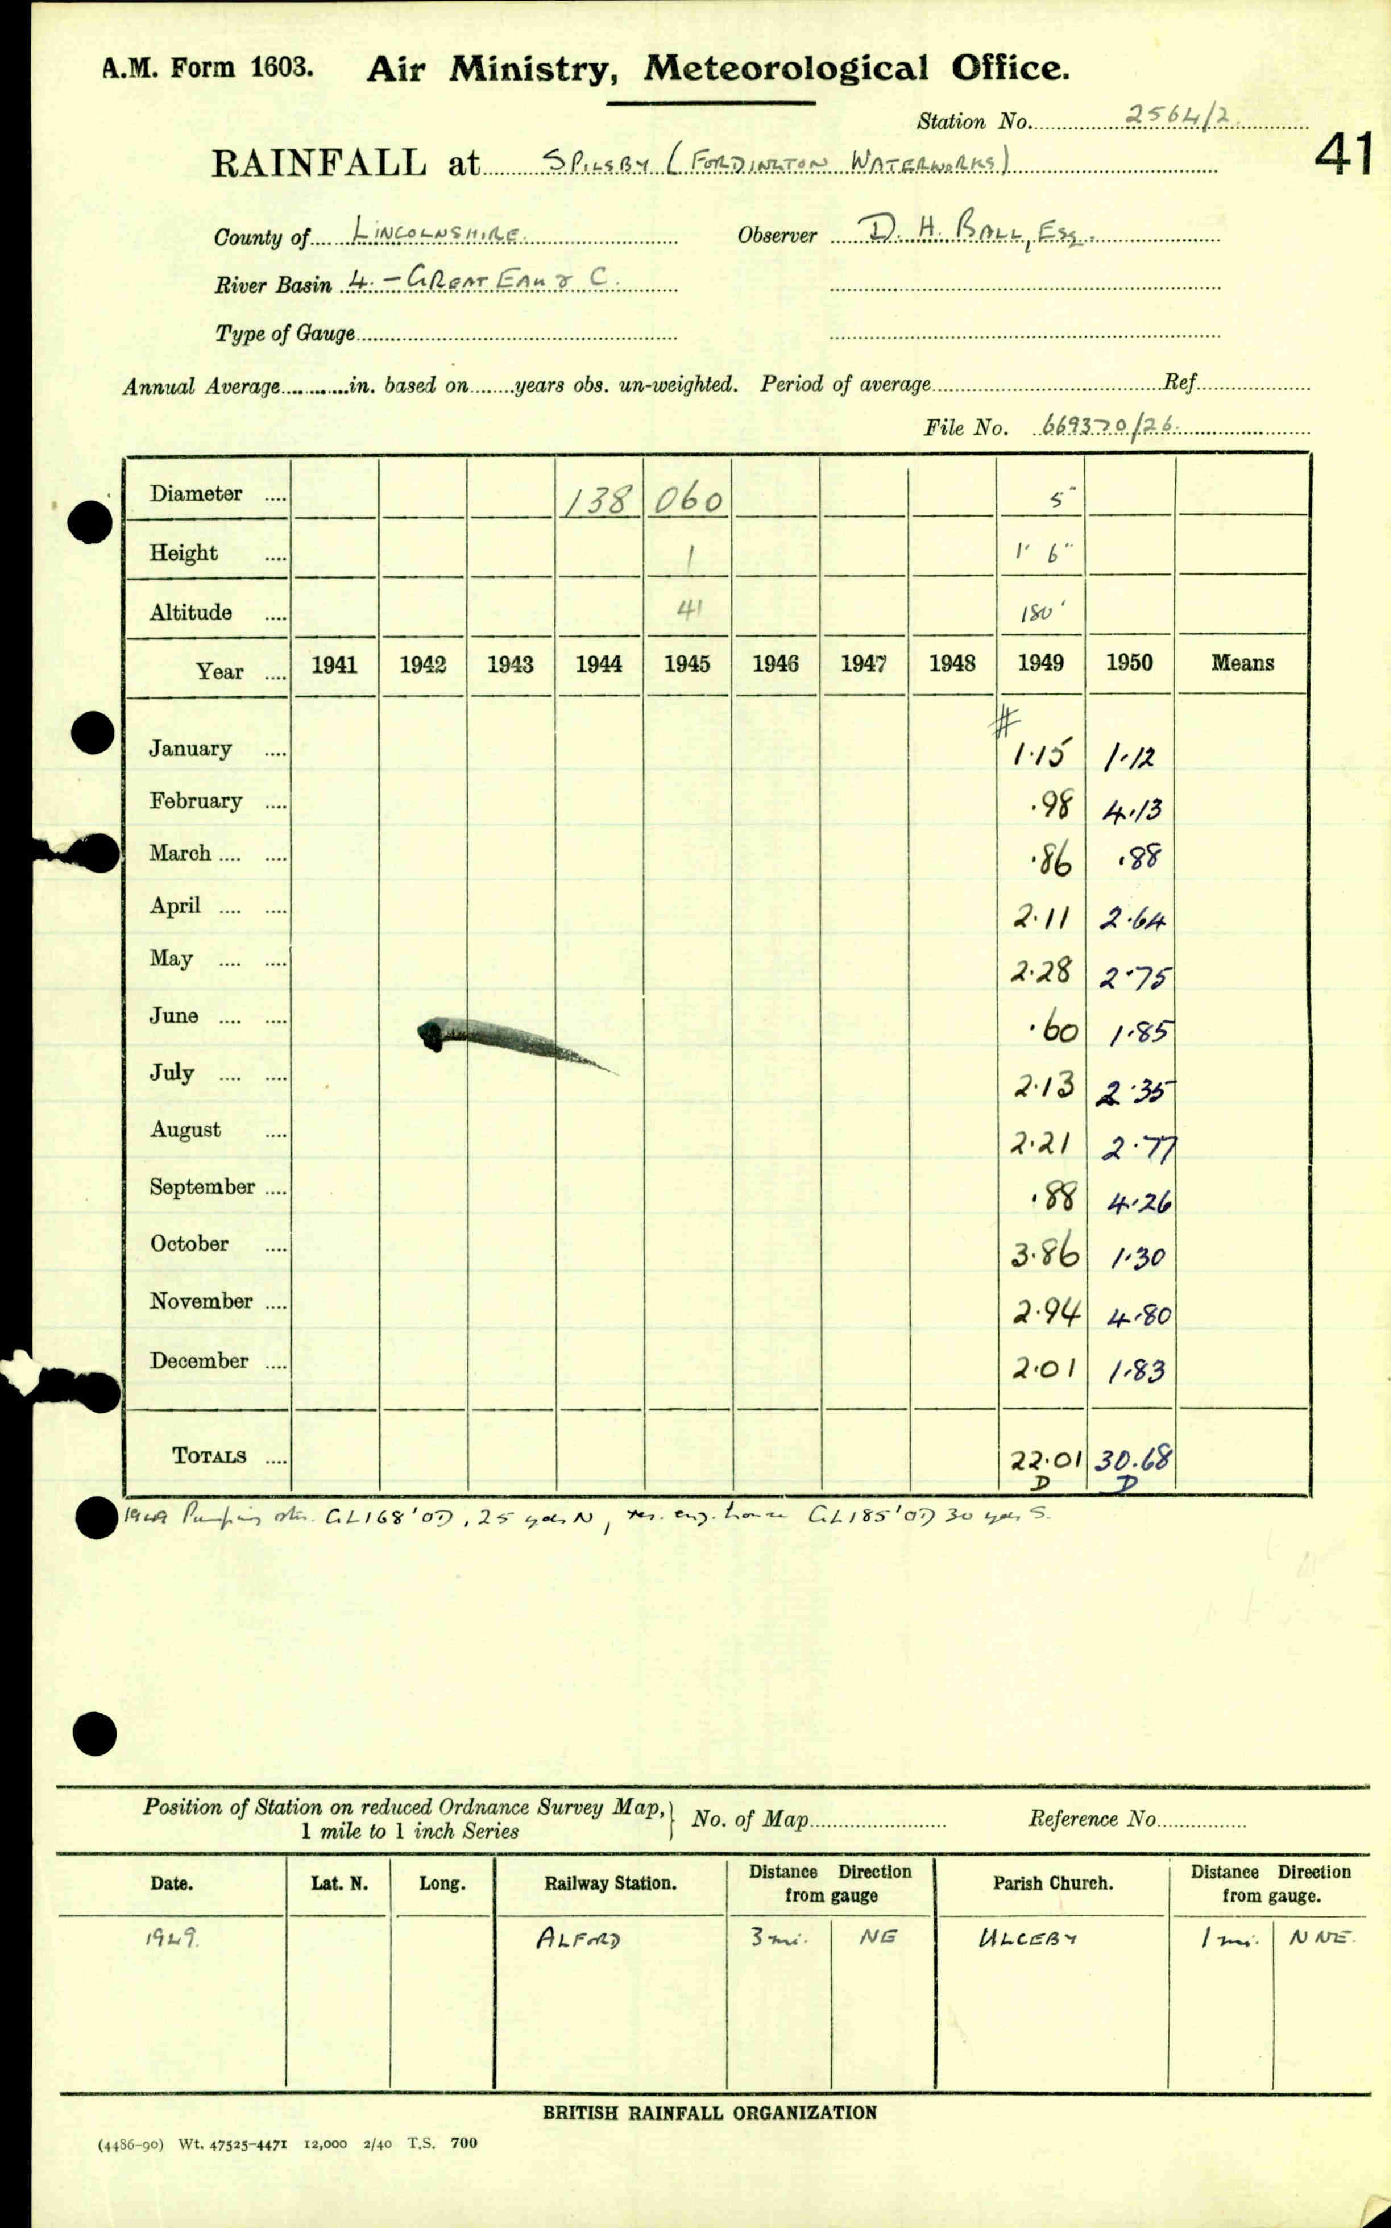 A.M. Form 1603. Air Ministry, Meteorological Office.
Station No. 2564/2
41
RAINFALL at SPILSBY (FORDINGTON WATERWORKS)
County of LINCOLNSHIRE. Observer D. H. BALL, ESQ.
River Basin 4. – GREAT EAU & C.
Type of Gauge
Annual Average in. based on years obs. un-weighted. Period of average Ref
File No. 669370/26.
Diameter .... 138 060 5"
Height .... 1 1' 6"
Altitude .... 41 180'
Year .... 1941 1942 1943 1944 1945 1946 1947 1948 1949 1950 Means
#
January .... 1.15 1.12
February .... .98 4.13
March .... .... .86 .88
April .... .... 2.11 2.64
May .... .... 2.28 2.75
June .... .... .60 1.85
July .... .... 2.13 2.35
August .... 2.21 2.77
September .... .88 4.26
October .... 3.86 1.30
November .... 2.94 4.80
December .... 2.01 1.83
TOTALS .... 22.01 30.68
D D
1949 Pumping stn. GL 168' OD, 25 yds N, eng. house GL 185' OD 30 yds S.
Position of Station on reduced Ordnance Survey Map, } No. of Map Reference No.
1 mile to 1 inch Series
Date. Lat. N. Long. Railway Station. Distance Direction from gauge Parish Church. Distance Direction from gauge.
1949. ALFORD 3 mi. NE ULCEBY 1 mi. NNE.
BRITISH RAINFALL ORGANIZATION
(4486-90) Wt. 47525-4471 12,000 2/40 T.S. 700